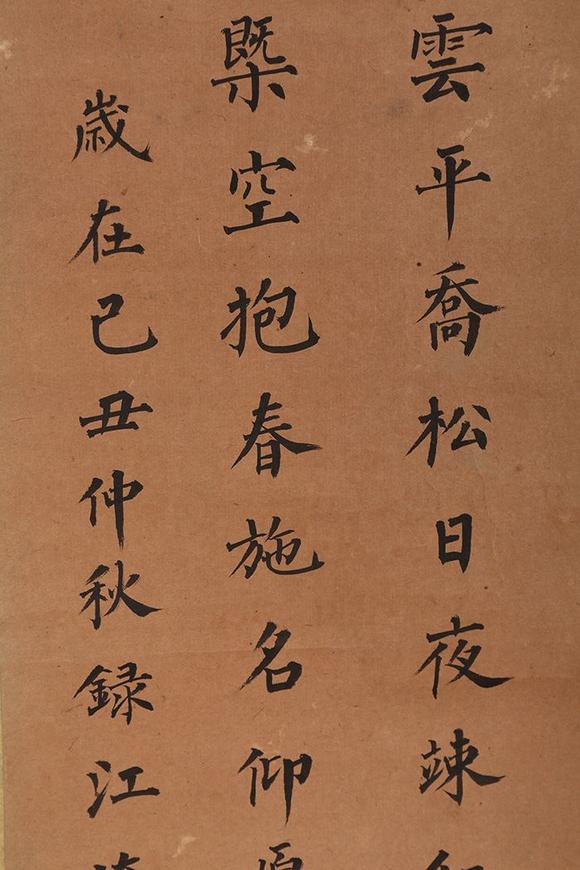 雲平喬松日夜竦
槩空抱春施名仰
歲在己丑仲秋録江